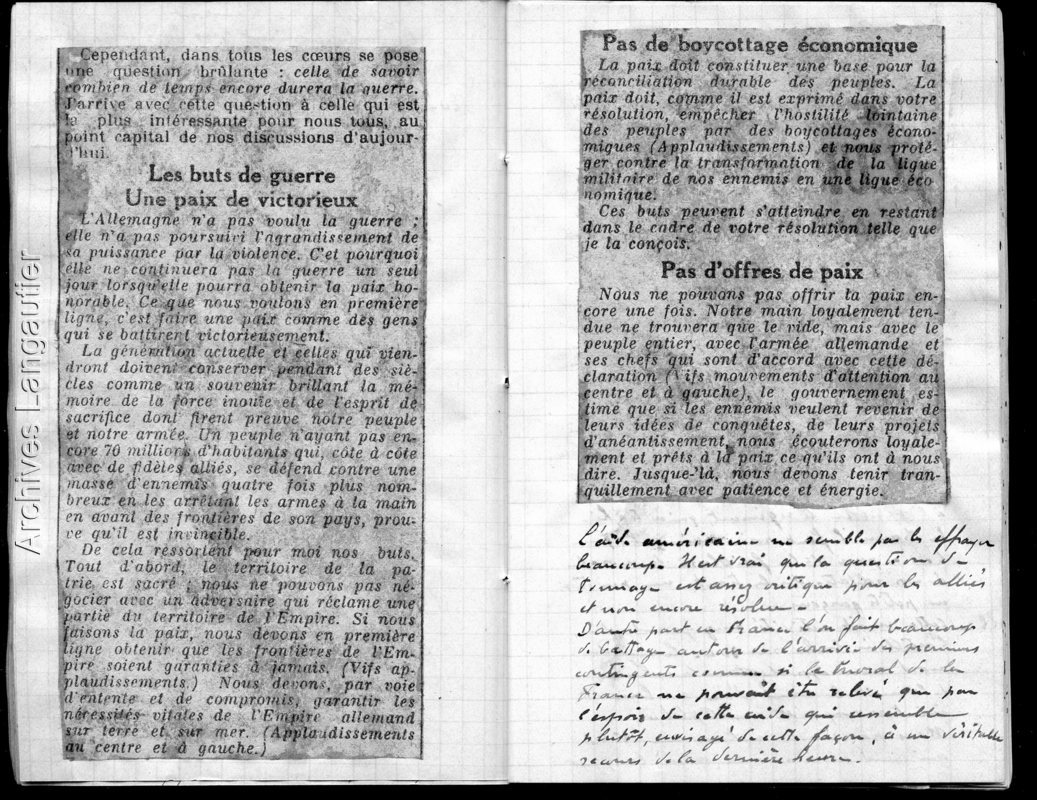 Archives Langautier
Cependant, dans tous les cœurs se pose
une question brûlante : celle de savoir
combien de temps encore durera la guerre.
J'arrive avec cette question à celle qui est
la plus intéressante pour nous tous, au
point capital de nos discussions d'aujour-
d'hui.
Les buts de guerre
Une paix de victorieux
L'Allemagne n'a pas voulu la guerre ;
elle n'a pas poursuivi l'agrandissement de
sa puissance par la violence. C'et pourquoi
elle ne continuera pas la guerre un seul
jour lorsqu'elle pourra obtenir la paix ho-
norable. Ce que nous voulons en première
ligne, c'est faire une paix comme des gens
qui se battirent victorieusement.
La génération actuelle et celles qui vien-
dront doivent conserver pendant des siè-
cles comme un souvenir brillant la mé-
moire de la force inouïe et de l'esprit de
sacrifice dont firent preuve notre peuple
et notre armée. Un peuple n'ayant pas en-
core 70 millions d'habitants qui, côte à côte
avec de fidèles alliés, se défend contre une
masse d'ennemis quatre fois plus nom-
breux en les arrêtant les armes à la main
en avant des frontières de son pays, prou-
ve qu'il est invincible.
De cela ressortent pour moi nos buts.
Tout d'abord, le territoire de la pa-
trie est sacré ; nous ne pouvons pas né-
gocier avec un adversaire qui réclame une
partie du territoire de l'Empire. Si nous
faisons la paix, nous devons en première
ligne obtenir que les frontières de l'Em-
pire soient garanties à jamais. (Vifs ap-
plaudissements.) Nous devons, par voie
d'entente et de compromis, garantir les
nécessités vitales de l'Empire allemand
sur terre et sur mer. (Applaudissements
au centre et à gauche.)
Pas de boycottage économique
La paix doit constituer une base pour la
réconciliation durable des peuples. La
paix doit, comme il est exprimé dans votre
résolution, empêcher l'hostilité lointaine
des peuples par des boycottages écono-
miques (Applaudissements) et nous proté-
ger contre la transformation de la ligue
militaire de nos ennemis en une ligue éco
nomique.
Ces buts peuvent s'atteindre en restant
dans le cadre de votre résolution telle que
je la conçois.
Pas d'offres de paix
Nous ne pouvons pas offrir la paix en-
core une fois. Notre main loyalement ten-
due ne trouvera que le vide, mais avec le
peuple entier, avec l'armée allemande et
ses chefs qui sont d'accord avec cette dé-
claration (Vifs mouvements d'attention au
centre et à gauche), le gouvernement es-
time que si les ennemis veulent revenir de
leurs idées de conquêtes, de leurs projets
d'anéantissement, nous écouterons loyale-
ment et prêts à la paix ce qu'ils ont à nous
dire. Jusque-là, nous devons tenir tran-
quillement avec patience et énergie.
l'aide américaine ne semble pas les effrayer
beaucoup. Il est vrai que la question du
tonnage est assez critique pour les alliés
et non encore résolue.
D'autre part en France l'on fait beaucoup
de battage autour de l'arrivée des premiers
contingents comme si le moral de la
France ne pouvait être relevé que par
l'espoir de cette aide qui ressemble
plutôt, envisagé de cette façon, à un véritable
secours de la dernière heure.